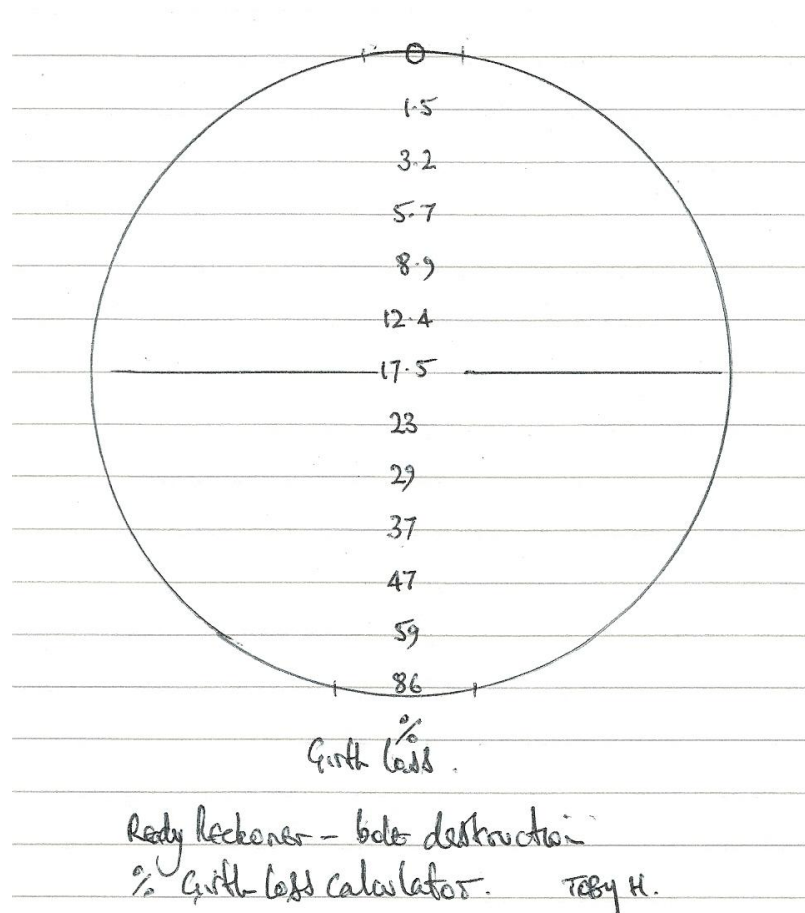 0
1.5
3.2
5.7
8.9
12.4
17.5
23
29
37
47
59
86
%
Girth loss.
Ready Reckoner - bole destruction
% Girth loss calculator. TOBY H.